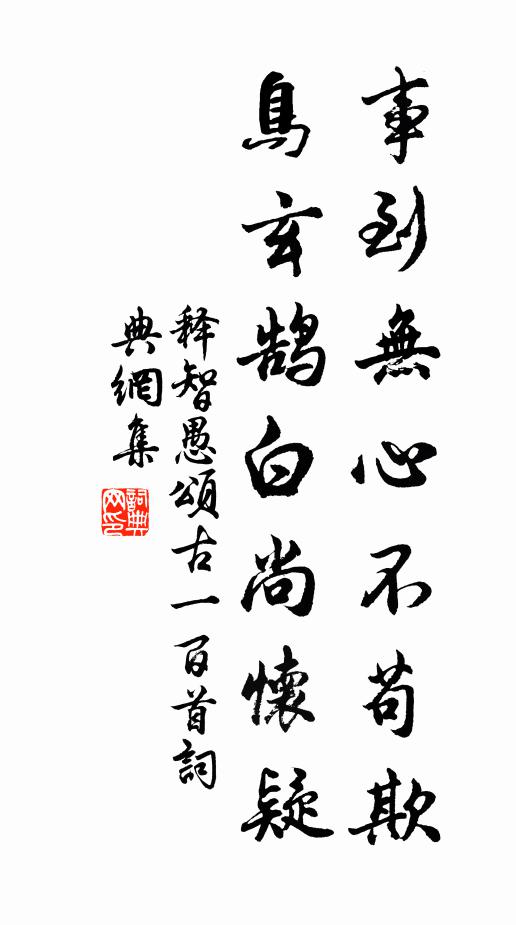 事到無心不苟欺
烏玄鹄白尚懷疑
释智愚頌古一百首詞
典網集
詞典网印